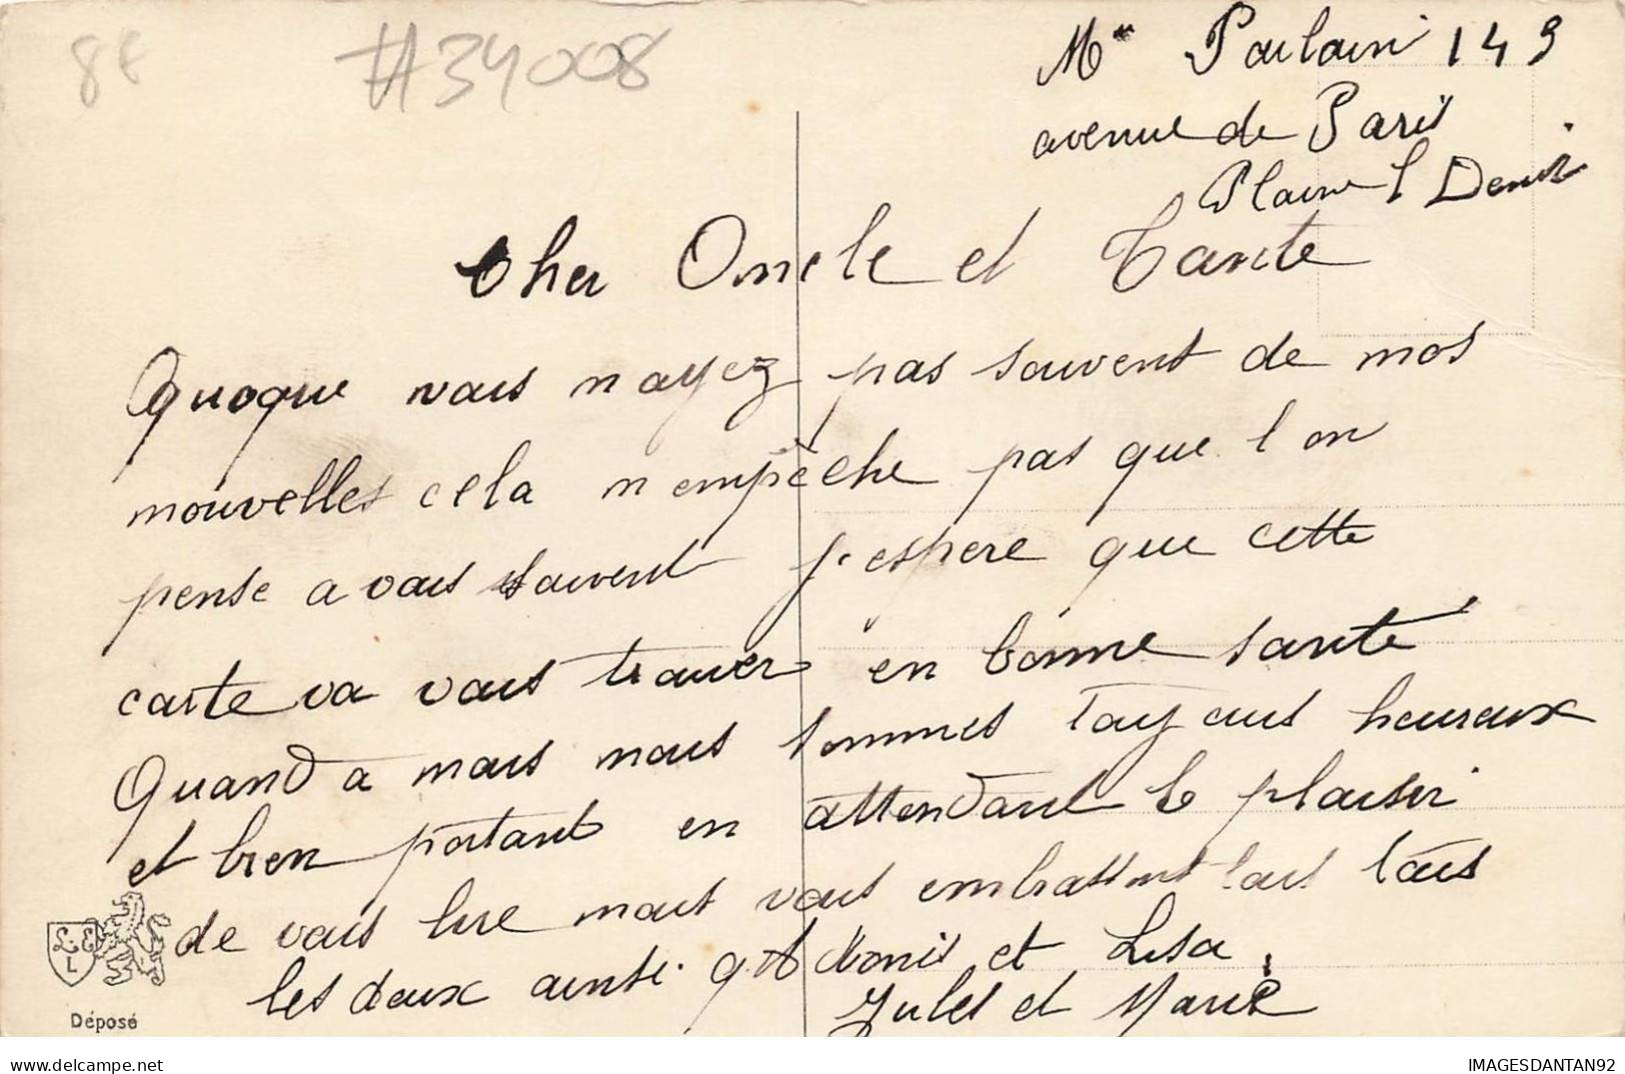 8€ #34008
Mr Poulain 149
avenue de Paris
Plaine S Denis
Cher Oncle et Tante
Quoque vous n ayez pas souvent de nos
nouvelles cela n empêche pas que l on
pense a vous souvent j'espere que cette
carte va vous trouver en bonne santé
Quand a nous nous sommes toujours heureux
et bien portant en attendant le plaisir
de vous lire nous vous embrassont tous tous
les deux ainsi q Adonis et Lisa.
Jules et Marie
L. E
L
Déposé
delcampe.net
IMAGESDANTAN92